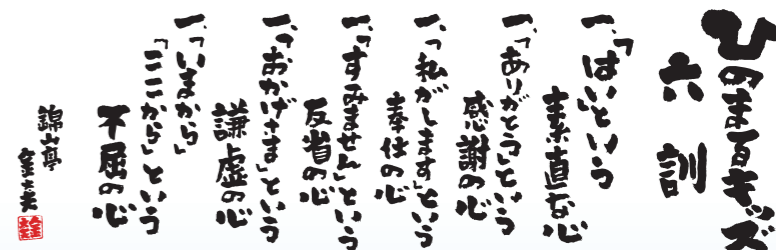 ひのま百キッズ
六訓
一、「はい」という
素直な心
一、「ありがとう」という
感謝の心
一、「私がします」という
奉仕の心
一、「すみません」という
反省の心
一、「おかげさま」という
謙虚の心
一、「いまから」
「ここから」という
不屈の心
錦山亭